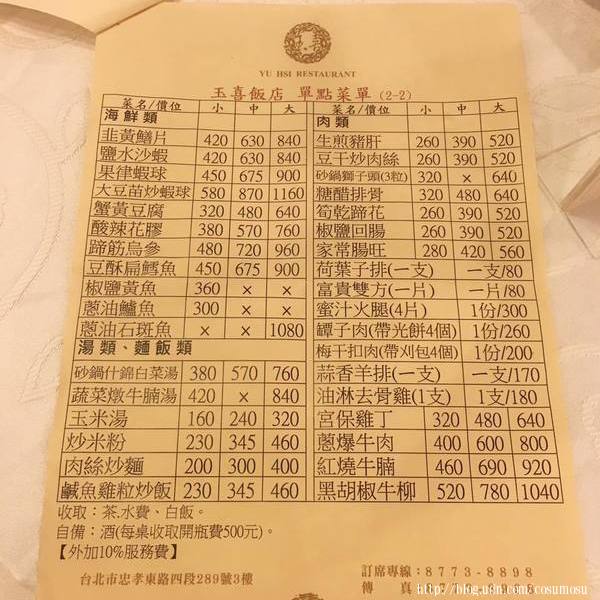 YU HSI RESTAURANT
玉喜飯店 單點菜單 (2-2)
菜名/價位 小 中 大
海鮮類
韭黃鱔片 420 630 840
鹽水沙蝦 420 630 840
果律蝦球 450 675 900
大豆苗炒蝦球 580 870 1160
蟹黃豆腐 320 480 640
酸辣花膠 380 570 760
蹄筋烏參 480 720 960
豆酥扁鱈魚 450 675 900
椒鹽黃魚 360 × ×
蔥油鱸魚 300 × ×
蔥油石斑魚 × × 1080
湯類、麵飯類
砂鍋什錦白菜湯 380 570 760
蔬菜燉牛腩湯 420 × 840
玉米湯 160 240 320
炒米粉 230 345 460
肉絲炒麵 200 300 400
鹹魚雞粒炒飯 230 345 460
菜名/價位 小 中 大
肉類
生煎豬肝 260 390 520
豆干炒肉絲 260 390 520
砂鍋獅子頭(3粒) 320 × 640
糖醋排骨 320 480 640
筍乾蹄花 260 390 520
椒鹽回腸 260 390 520
家常腸旺 280 420 560
荷葉子排(一支) 一支/80
富貴雙方(一片) 一片/80
蜜汁火腿(4片) 1份/300
罈子肉(帶光餅4個) 1份/260
梅干扣肉(帶刈包4個) 1份/200
蒜香羊排(一支) 一支/170
油淋去骨雞(1支) 1支/180
宮保雞丁 320 480 640
蔥爆牛肉 400 600 800
紅燒牛腩 460 690 920
黑胡椒牛柳 520 780 1040
收取：茶.水費、白飯。
自備：酒(每桌收取開瓶費500元)。
【外加10%服務費】
台北市忠孝東路四段289號3樓
訂席專線：8773-8898
傳 真
http://blog.udn.com/cosumosu